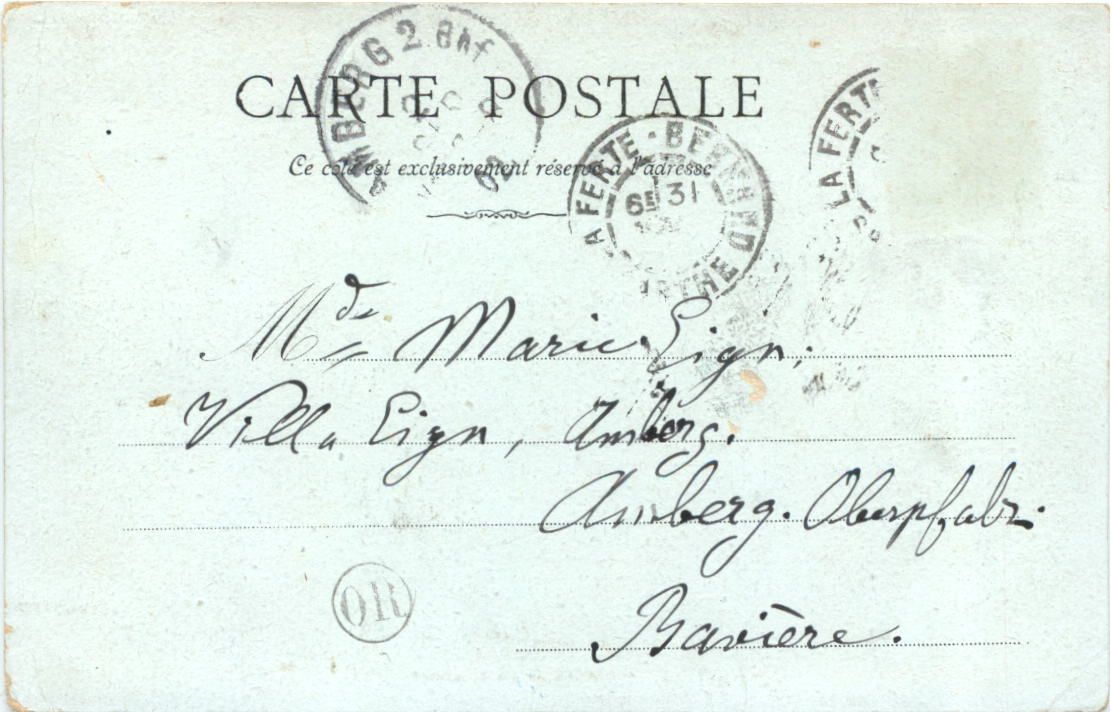 AMBERG 2 Bhf
02
CARTE POSTALE
Ce côté est exclusivement réservé à l'adresse
LA FERTE-BERNARD
6E 31
SARTHE
LA FERTE
Mde Marie Eign,
Villa Eign, Amberg.
Amberg. Oberpfalz.
Bavière.
OR